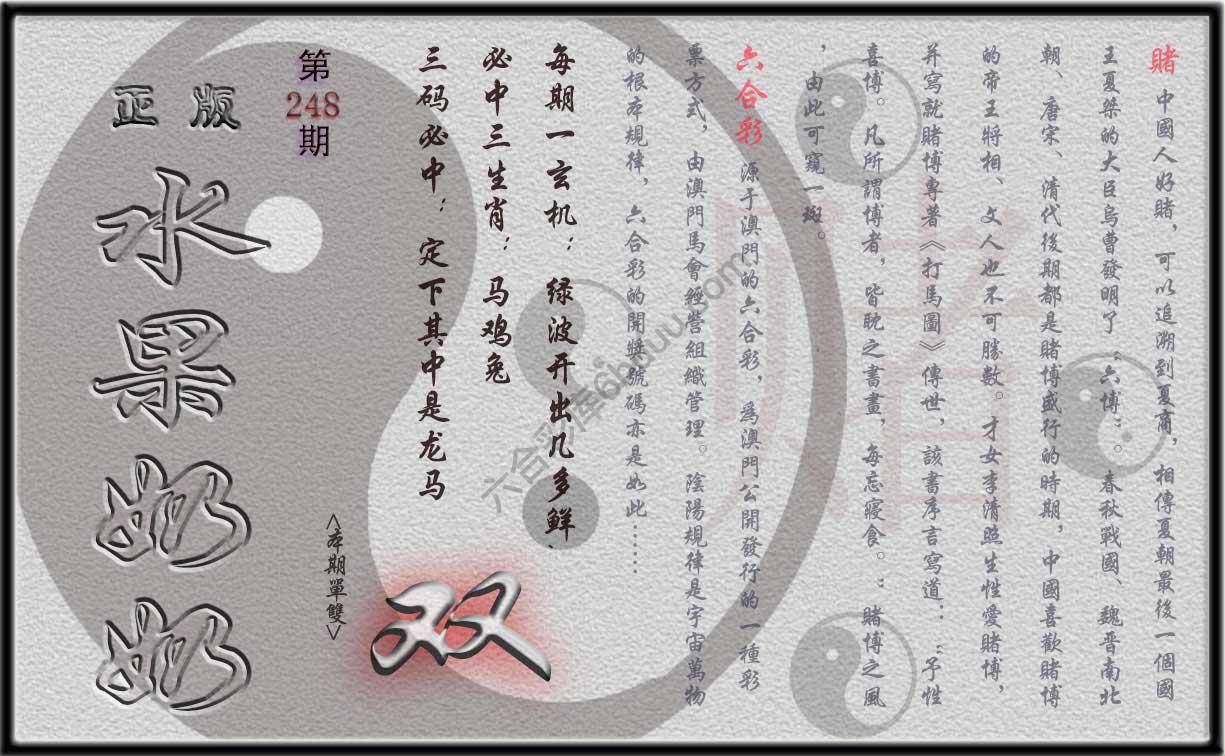 賭 中國人好賭，可以追溯到夏商，相傳夏朝最後一個國
王夏桀的大臣烏曹發明了“六博”。春秋戰國、魏晋南北
朝、唐宋、清代後期都是賭博盛行的時期，中國喜歡賭博
的帝王將相、文人也不可勝數。才女李清照生性愛賭博，
并寫就賭博專著《打馬圖》傳世，該書序言寫道：“予性
喜博。凡所謂博者，皆耽之書畫，每忘寢食。”賭博之風
，由此可窺一斑。
六合彩 源于澳門的六合彩，爲澳門公開發行的一種彩
票方式，由澳門馬會經營組織管理。陰陽規律是宇宙萬物
的根本規律，六合彩的開獎號碼亦是如此……
每期一玄机：绿波开出几多鲜、
必中三生肖：马鸡兔
三码必中：定下其中是龙马
双
<本期單雙>
第
248
期
正版
水果奶奶
賭
六合彩库6hduu.com